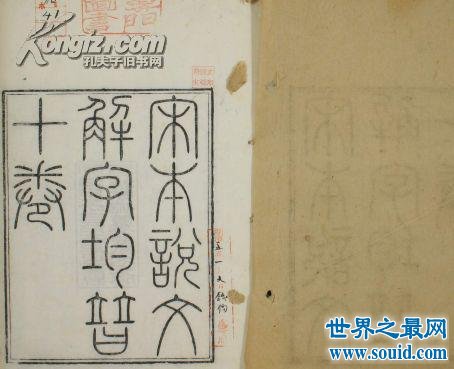 圖書
Kongfz.com
孔夫子旧书网
宋本說文
解字均普
十卷
世界之最网
www.souid.com